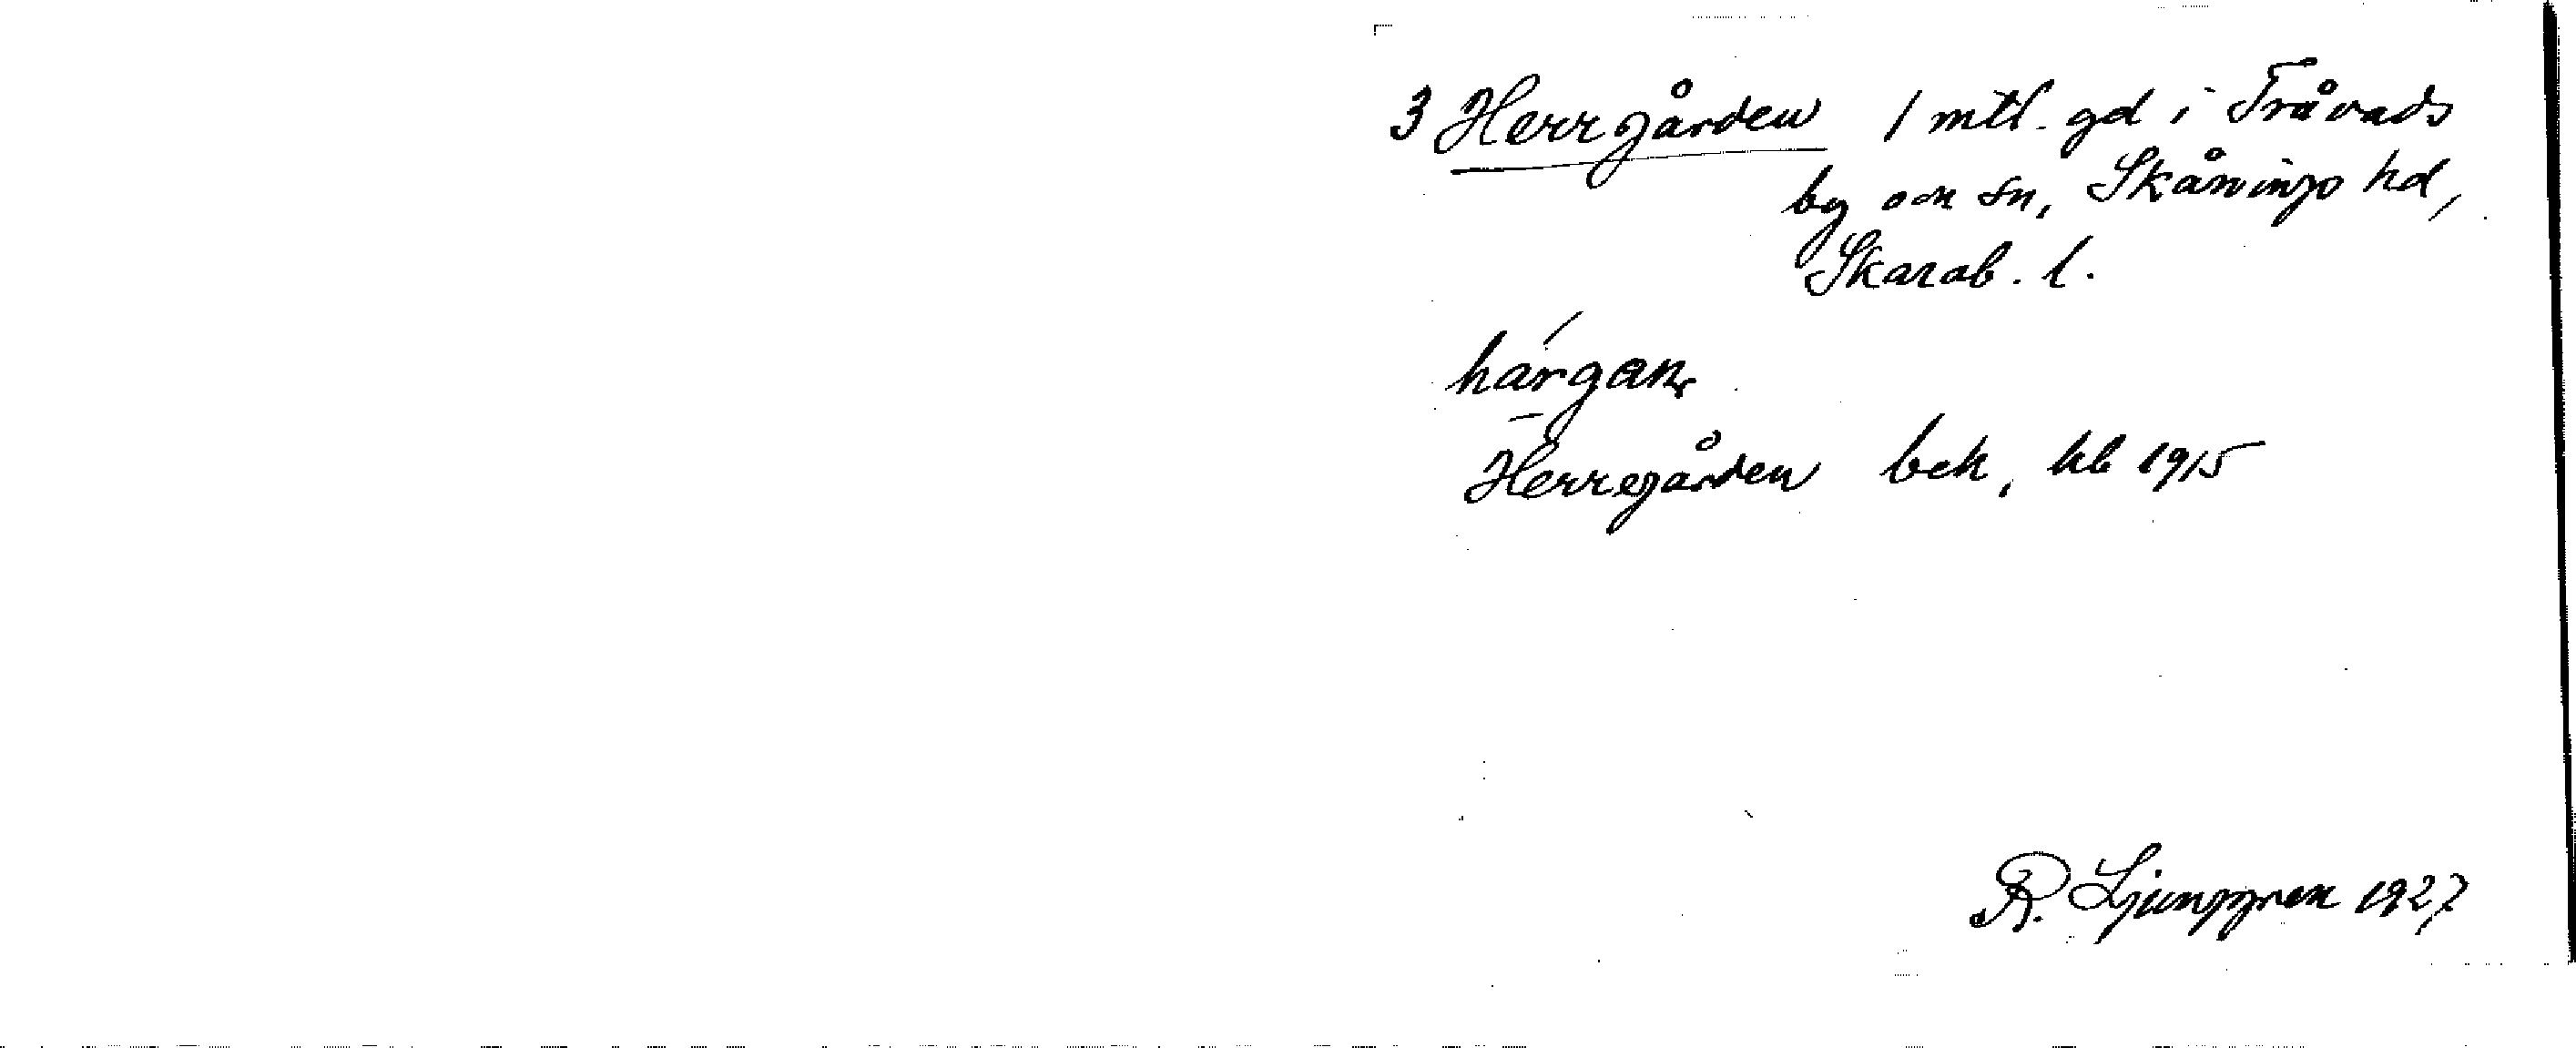 3 Herrgården 1 mtl. gd i Tråvads
by och sn, Skånings hd,
Skarab. l.
hárgan
Herregården bek, kb 1915
R. Ljunggren 1927